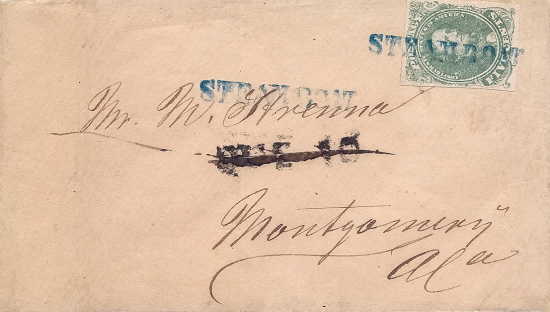 STEAMBOAT
STEAMBOAT
Mr. M.
DUE 10
Montgomery
Ala